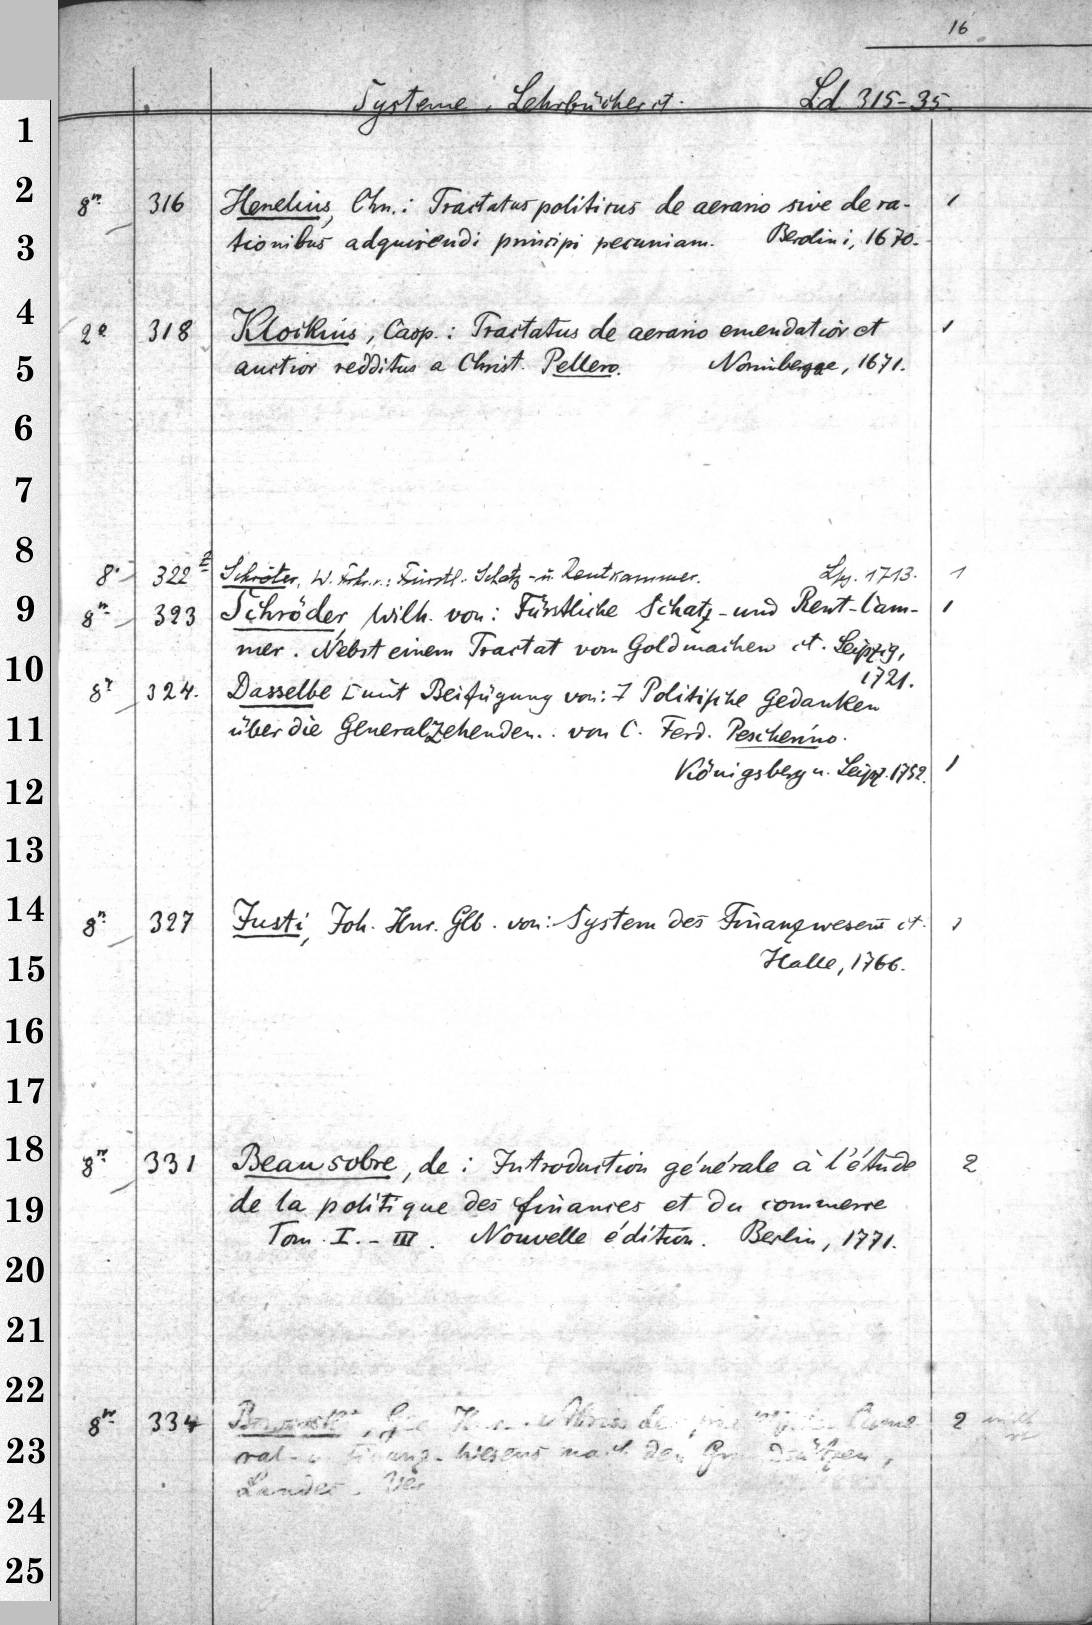 16
Systeme, Lehrbücher ct. Ld. 315-35.
1
2 8º 316 Henelius, Chn.: Tractatus politicus de aerario sive de ra- 1
3 tionibus adquirendi principi pecuniam. Berolini, 1670.
4 2º 318 Klockius, Casp.: Tractatus de aerario emendatior et 1
5 auctior redditus a Christ. Pellero. Norimbergae, 1671.
6
7
8 8º 322² Schröter, W. Frh. v.: Fürstl. Schatz- u. Rentkammer. Lpz. 1713. 1
9 8º 323 Schröder, Wilh. von: Fürstliche Schatz- und Rent-Cam- 1
mer. Nebst einem Tractat vom Goldmachen ct. Leipzig,
10 1721.
8º 324. Dasselbe [mit Beifügung von: 7 Politische Gedanken
11 über die Generalzehenden.. von C. Ferd. Pescherino.
12 Königsberg u. Leipz. 1752. 1
13
14 8º 327 Justi, Joh. Hnr. Glb. von: System des Finanzwesens ct. 1
15 Halle, 1766.
16
17
18 8º 331 Beausobre, de: Introduction générale à l'étude 2
19 de la politique des finances et du commerce
Tom. I.-III. Nouvelle édition. Berlin, 1771.
20
21
22
8º 334 2
23 ral- nach
24 Landes
25